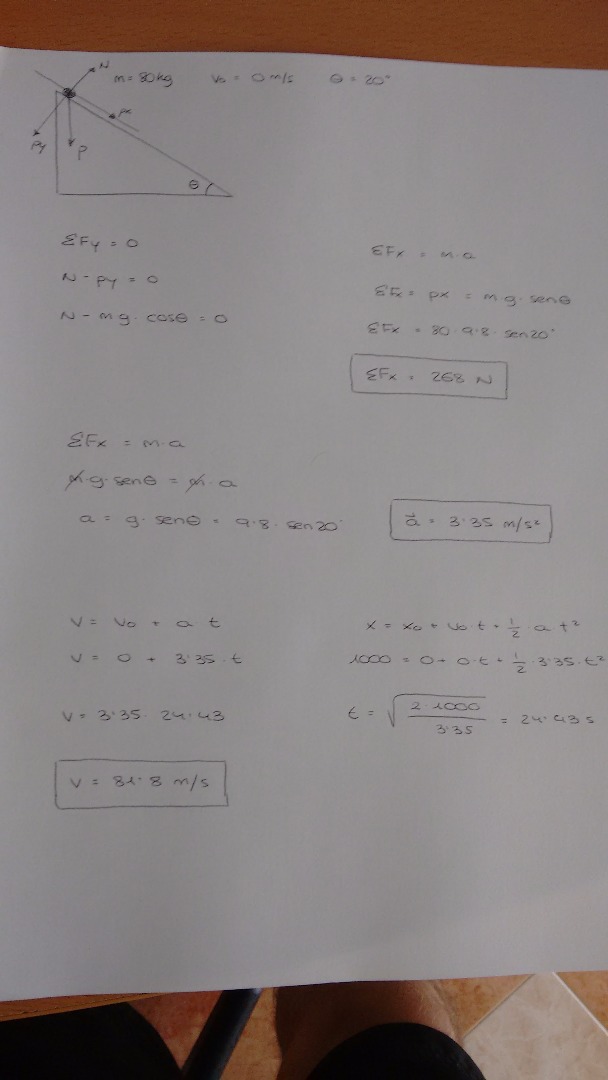 N
m = 80 kg    V₀ = 0 m/s    θ = 20°
px
py
P
θ
ΣFy = 0
N - py = 0
N - m g · cosθ = 0
ΣFx = m·a
ΣFx = px = m·g·senθ
ΣFx = 80·9'8·sen20°
ΣFx = 268 N
ΣFx = m·a
m·g·senθ = m·a
a = g·senθ = 9'8·sen20°
a⃗ = 3'35 m/s²
V = V₀ + a t
V = 0 + 3'35·t
V = 3'35· 24'43
V = 81'8 m/s
x = x₀ + V₀·t + 1/2·a t²
1000 = 0 + 0·t + 1/2·3'35·t²
t = √(2·1000/3'35) = 24'43 s